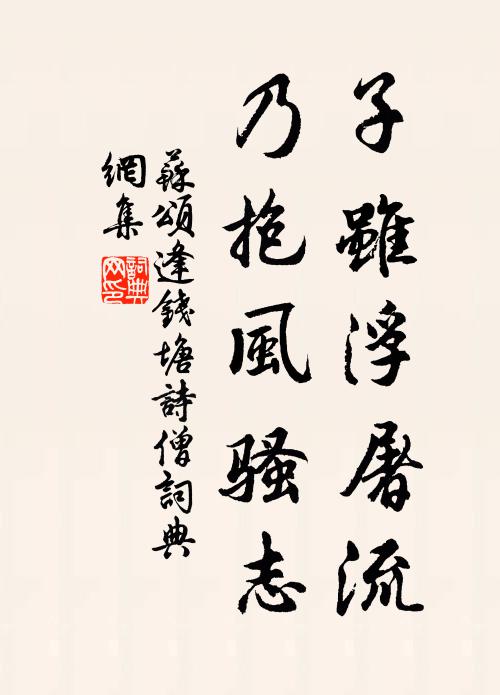 子雖浮屠流
乃抱風騷志
蘇頌逢錢塘詩僧詞典
網集
詞典
网印